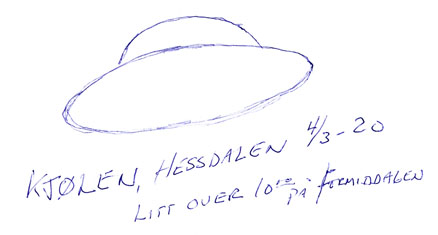 KJØLEN, HESSDALEN 4/3-20
LITT OVER 10⁰⁰ PÅ FORMIDDAGEN